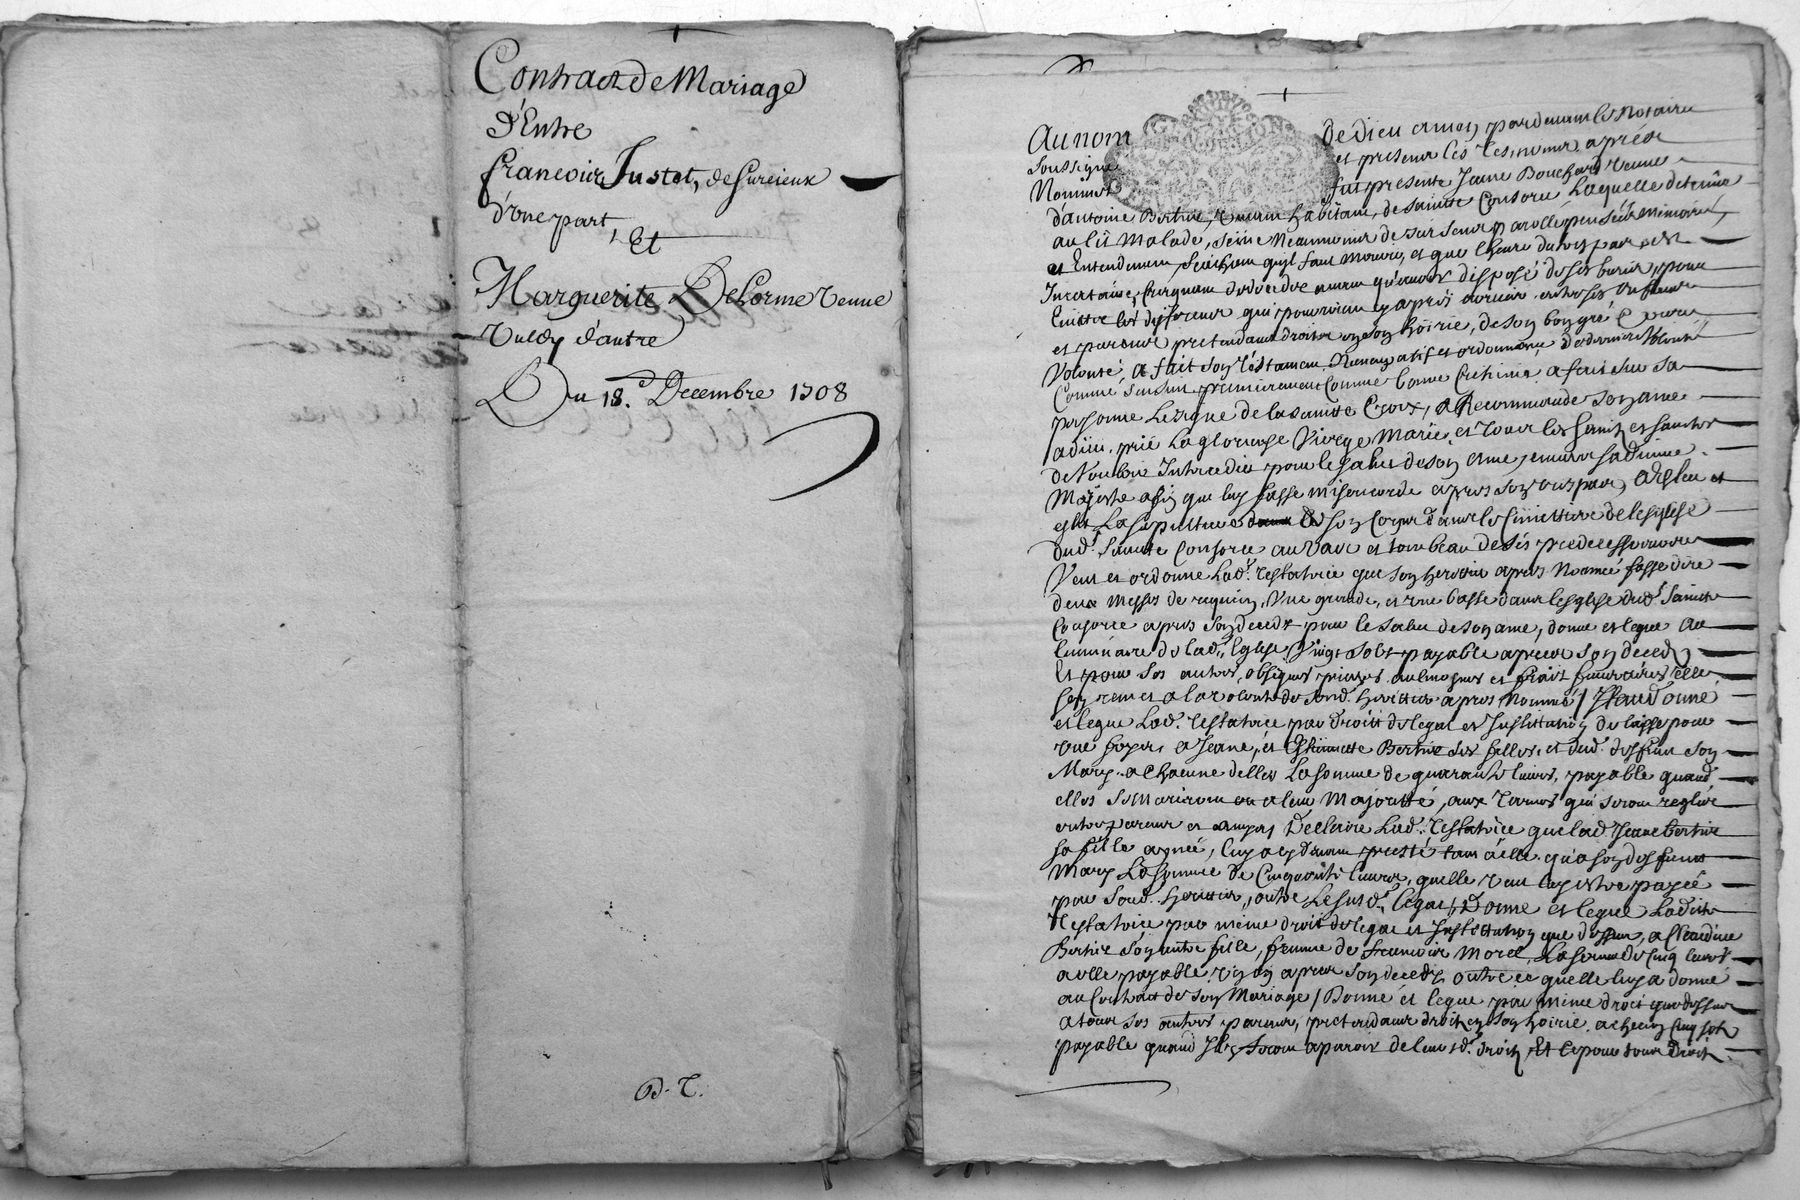 Contract de Mariage
d'Entre
francois Justet, de surcieux
d'une part,
Et
Marguerite DeLorme veuve
d'autre
Du 18.e Decembre 1708
D. T.
Au nom de Dieu amen pardevant le Notaire
soussigné et presents les tesmoins aprés
Nommes fut presente Jeane Bouchard veuve
d'antoine Bertier, vivant habitant, de sainte Consorce, Laquelle detenue
au lit Malade, seine Neanmoins de ses sens parolle pensées Mémoire,
et Entendement, scachant qu'il faut Mourir, et que l'heure du
Incertaine, Craignant de deceder avant qu'avoir disposé de ses biens, pour
Eviter les differents qui pourroient cy après arriver entre ses Enfans
et parents pretendants droits en son hoirie, de son bon gré
Volonté, a fait son testament Noncupatif et ordonnance de derniere Volonté
Comme sensuit premierement Comme bonne Cretienne a fait sur sa
personne Le signe de la sainte Croix, a Recommandé son ame
a dieu, prié La glorieuse Vierge Marie, et tous les saints et saintes
de Vouloir Interceder pour le salut de son ame, envers sa divine
Majesté afin que luy fasse misericorde apres son trespas, a Esleu et
eslit La sepulture de son Corps dans le Cimettiere de leglise
dud. sainte Consorce au Vase et tombeau de ses predecesseurs
Veut et ordonne Lad. testatrice que son heritier apres Nommé fasse dire
deux Messes de requiem, Vne grande, et vne basse dans leglise dud. sainte
Consorce apres son deced pour le salut de son ame, donne et legue au
luminaire de lad. Eglise Vingt sols payable apres son deced
Et pour ses autres obseques prieres aulmosnes et frais funeraires elle
sen remet a la volonté de sond. heritier apres Nommé / Item donne
et legue Lad. testatrice par droit de legat et Institution delaissé pour
vne foys, a Jeane, et Estiennette Bertier ses filles, et dud. deffunt son
Mary, a Chacune d'elles La somme de quarante livres, payable quand
elles se Marieront ou a leur Majorité, aux termes qui seront reglés
entre parents et amys, Declaire Lad. testatrice que lad. Jeane bertier
sa fille aynée, luy a cy devant presté tant a elle qu'a son deffunt
Mary La somme de Cinquante livres, quelle veut luy estre payée
par sond. heritier, outre Le susd. legat, Donne et legue Ladite
testatrice par même droit de legat et Institution que dessus, a Claudine
Bertier son autre fille, femme de francois Morel, La somme de Cinq livres
a elle payable vn an apres son deced, outre ce quelle luy a donné
au Contract de son Mariage / Donne et legue par même droit que dessus
a tous ses autres parents, pretendants droit en son hoirie, a chacun Cinq sols
payable quand Ils feront aparoir de leursd. droits, Et ce pour tous Droits